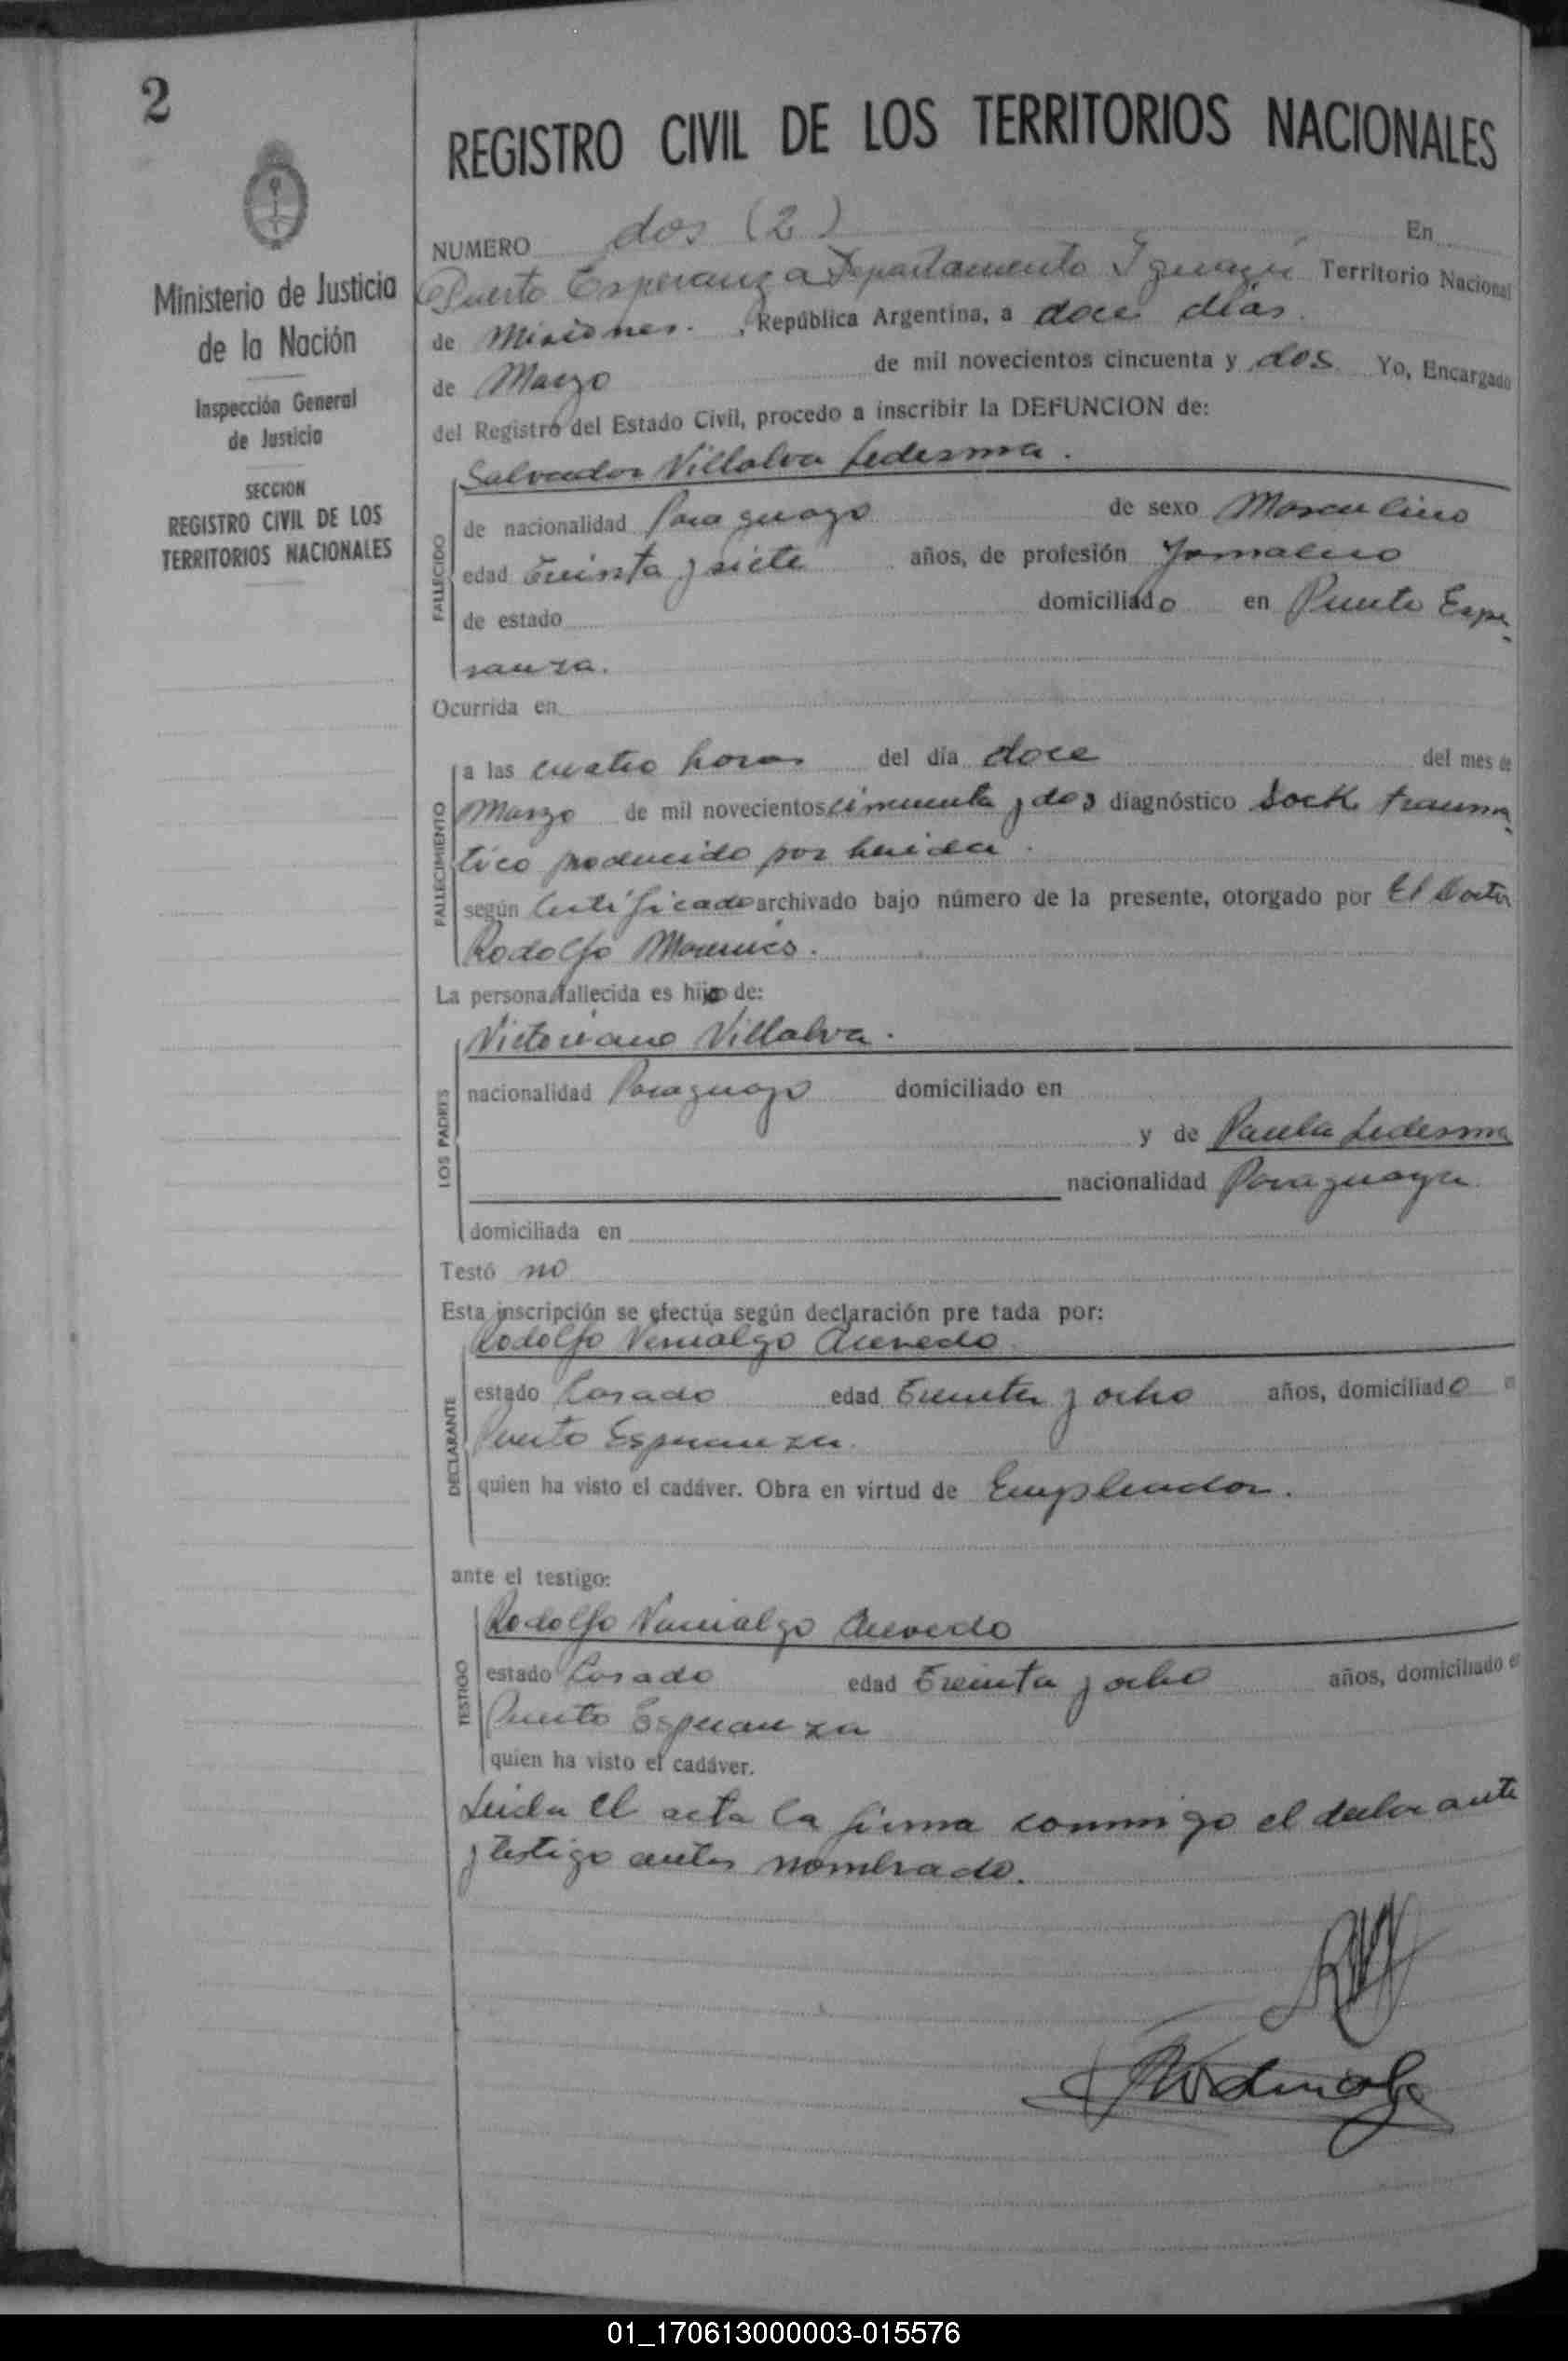 2
Ministerio de Justicia
de la Nación
Inspección General
de Justicia
SECCION
REGISTRO CIVIL DE LOS
TERRITORIOS NACIONALES
REGISTRO CIVIL DE LOS TERRITORIOS NACIONALES
NUMERO dos (2) En
Puerto Esperanza Departamento Iguazú Territorio Nacional
de Misiones. , República Argentina, a doce días.
de Marzo de mil novecientos cincuenta y dos Yo, Encargado
del Registro del Estado Civil, procedo a inscribir la DEFUNCION de:
Salvador Villalva Ledesma.
FALLECIDO
de nacionalidad Paraguayo de sexo Masculino
edad Treinta y siete años, de profesión Jornalero
de estado domiciliado en Puerto Espe-
ranza.
Ocurrida en
FALLECIMIENTO
a las cuatro horas del día doce del mes de
Marzo de mil novecientos cincuenta y dos diagnóstico Sock trauma-
tico producido por herida.
según Certificado archivado bajo número de la presente, otorgado por El Doctor
Rodolfo
La persona fallecida es hijo de:
LOS PADRES
Victoriano Villalva.
nacionalidad Paraguayo domiciliado en
y de Paula Ledesma
nacionalidad Paraguaya
domiciliada en
Testó no
Esta inscripción se efectúa según declaración pre tada por:
DECLARANTE
Rodolfo Venialgo Acevedo
estado Casado edad Treinta y ocho años, domiciliado
Puerto Esperanza.
quien ha visto el cadáver. Obra en virtud de Empleador.
ante el testigo:
TESTIGO
Rodolfo Venialgo Acevedo
estado Casado edad Treinta y ocho años, domiciliado
Puerto Esperanza
quien ha visto el cadáver.
Leida el acta la firma conmigo el declarante
y testigo antes nombrado.
01_170613000003-015576